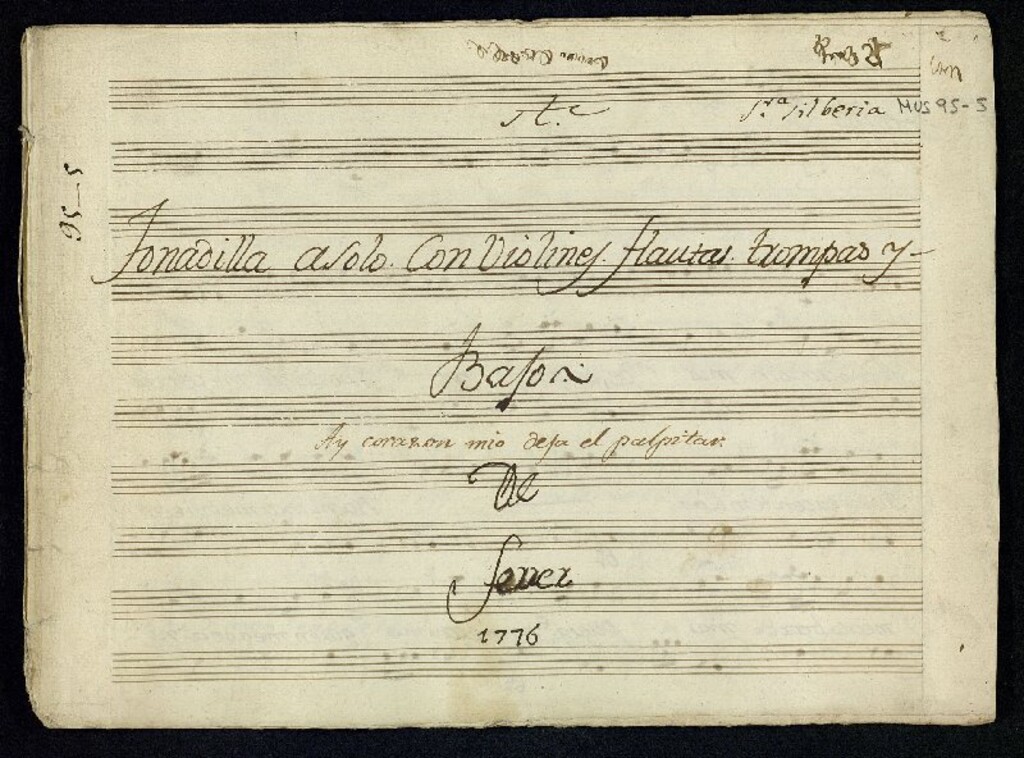 can
S.ra Silberia MUS 95-5
At.e
95-5
Tonadilla asolo. Con Violines. flautas. trompas y
Bajon
Ay corazon mio deja el palpitar
De
Ferrer
1776